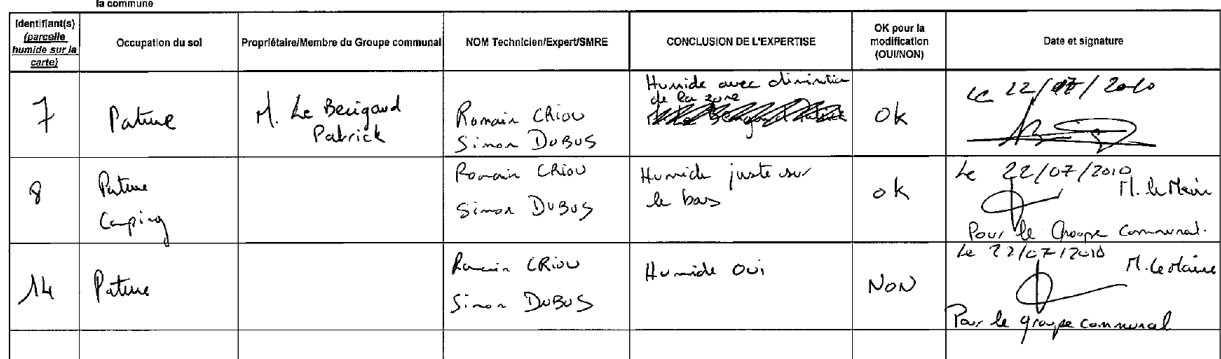 la commune
Identifiant(s)
(parcelle
humide sur la
carte)
Occupation du sol
Propriétaire/Membre du Groupe communal
NOM Technicien/Expert/SMRE
CONCLUSION DE L'EXPERTISE
OK pour la
modification
(OUI/NON)
Date et signature
7
Pature
M. Le Berigaud
Patrick
Romain CRIOU
Simon DUBUS
Humide avec diminution
de la zone
Ok
Le 22/07/2010
8
Pature
Camping
Romain CRIOU
Simon DUBUS
Humide juste sur
le bas
ok
Le 22/07/2010
M. le Maire
Pour le Groupe Communal.
14
Pature
Romain CRIOU
Simon DUBUS
Humide Oui
NON
Le 22/07/2010
M. Le Maire
Pour le groupe communal